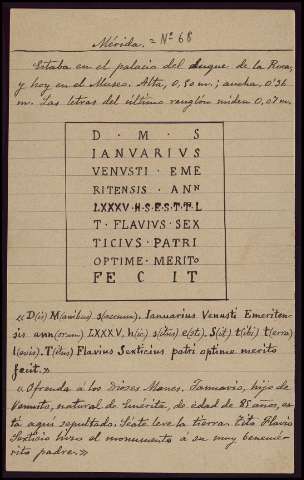 Mérida. = Nº 68
Estaba en el palacio del duque de la Roca,
y hoy en el Museo. Alta, 0,50 m.; ancha, 0'36
m. Las letras del último renglón miden 0,07 m.
D · M · S
IANVARIVS
VENVSTI · EME
RITENSIS · ANN
LXXXV·H·S·E·S·T·T·L
T · FLAVIVS · SEX
TICIVS · PATRI
OPTIME · MERITO
FECIT
«D(is) M(anibus) s(acrum). Ianuarius Venusti Emeriten-
sis ann(orum) LXXXV. h(ic) s(itus) e(st). S(it) t(ibi) t(erra)
l(evis). T(itus) Flavius Sexticius patri optime merito
fecit.»
«Ofrenda á los Dioses Manes. Januario, hijo de
Venusto, natural de Emérita, de edad de 85 años, es-
tá aquí sepultado. Séate leve la tierra. Tito Flavio
Sexticio hizo el monumento á su muy benemé-
rito padre.»